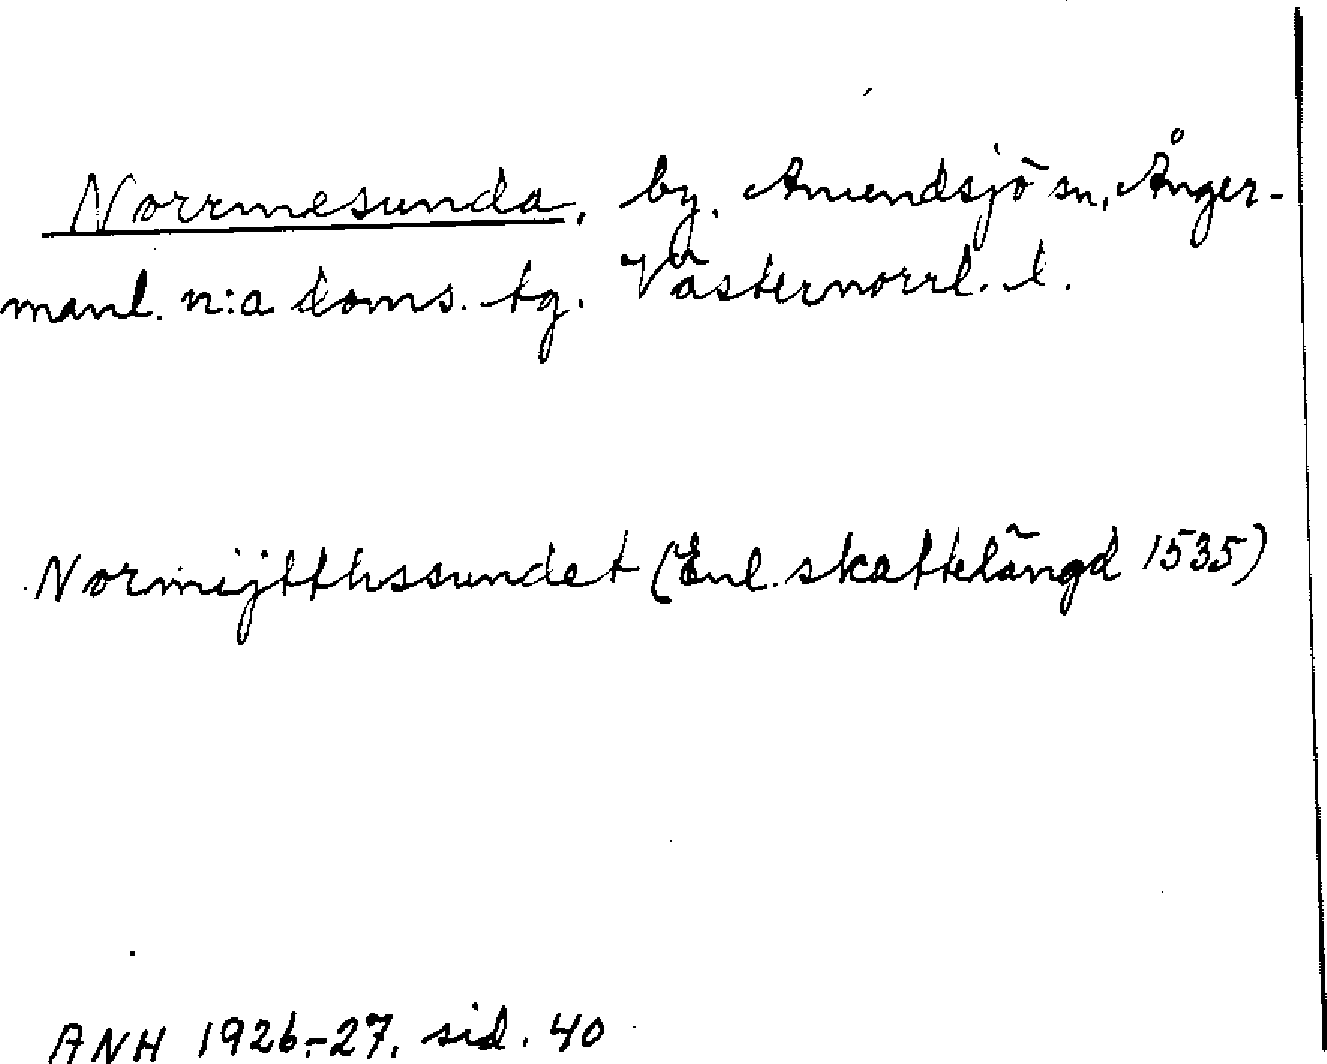 Norrmesunda, by. Anundsjö sn, Ånger-
manl. n:a doms. tg. Västernorrl. l.
Normijtthssundet (Enl. skattelängd 1535)
ANH 1926-27, sid. 40